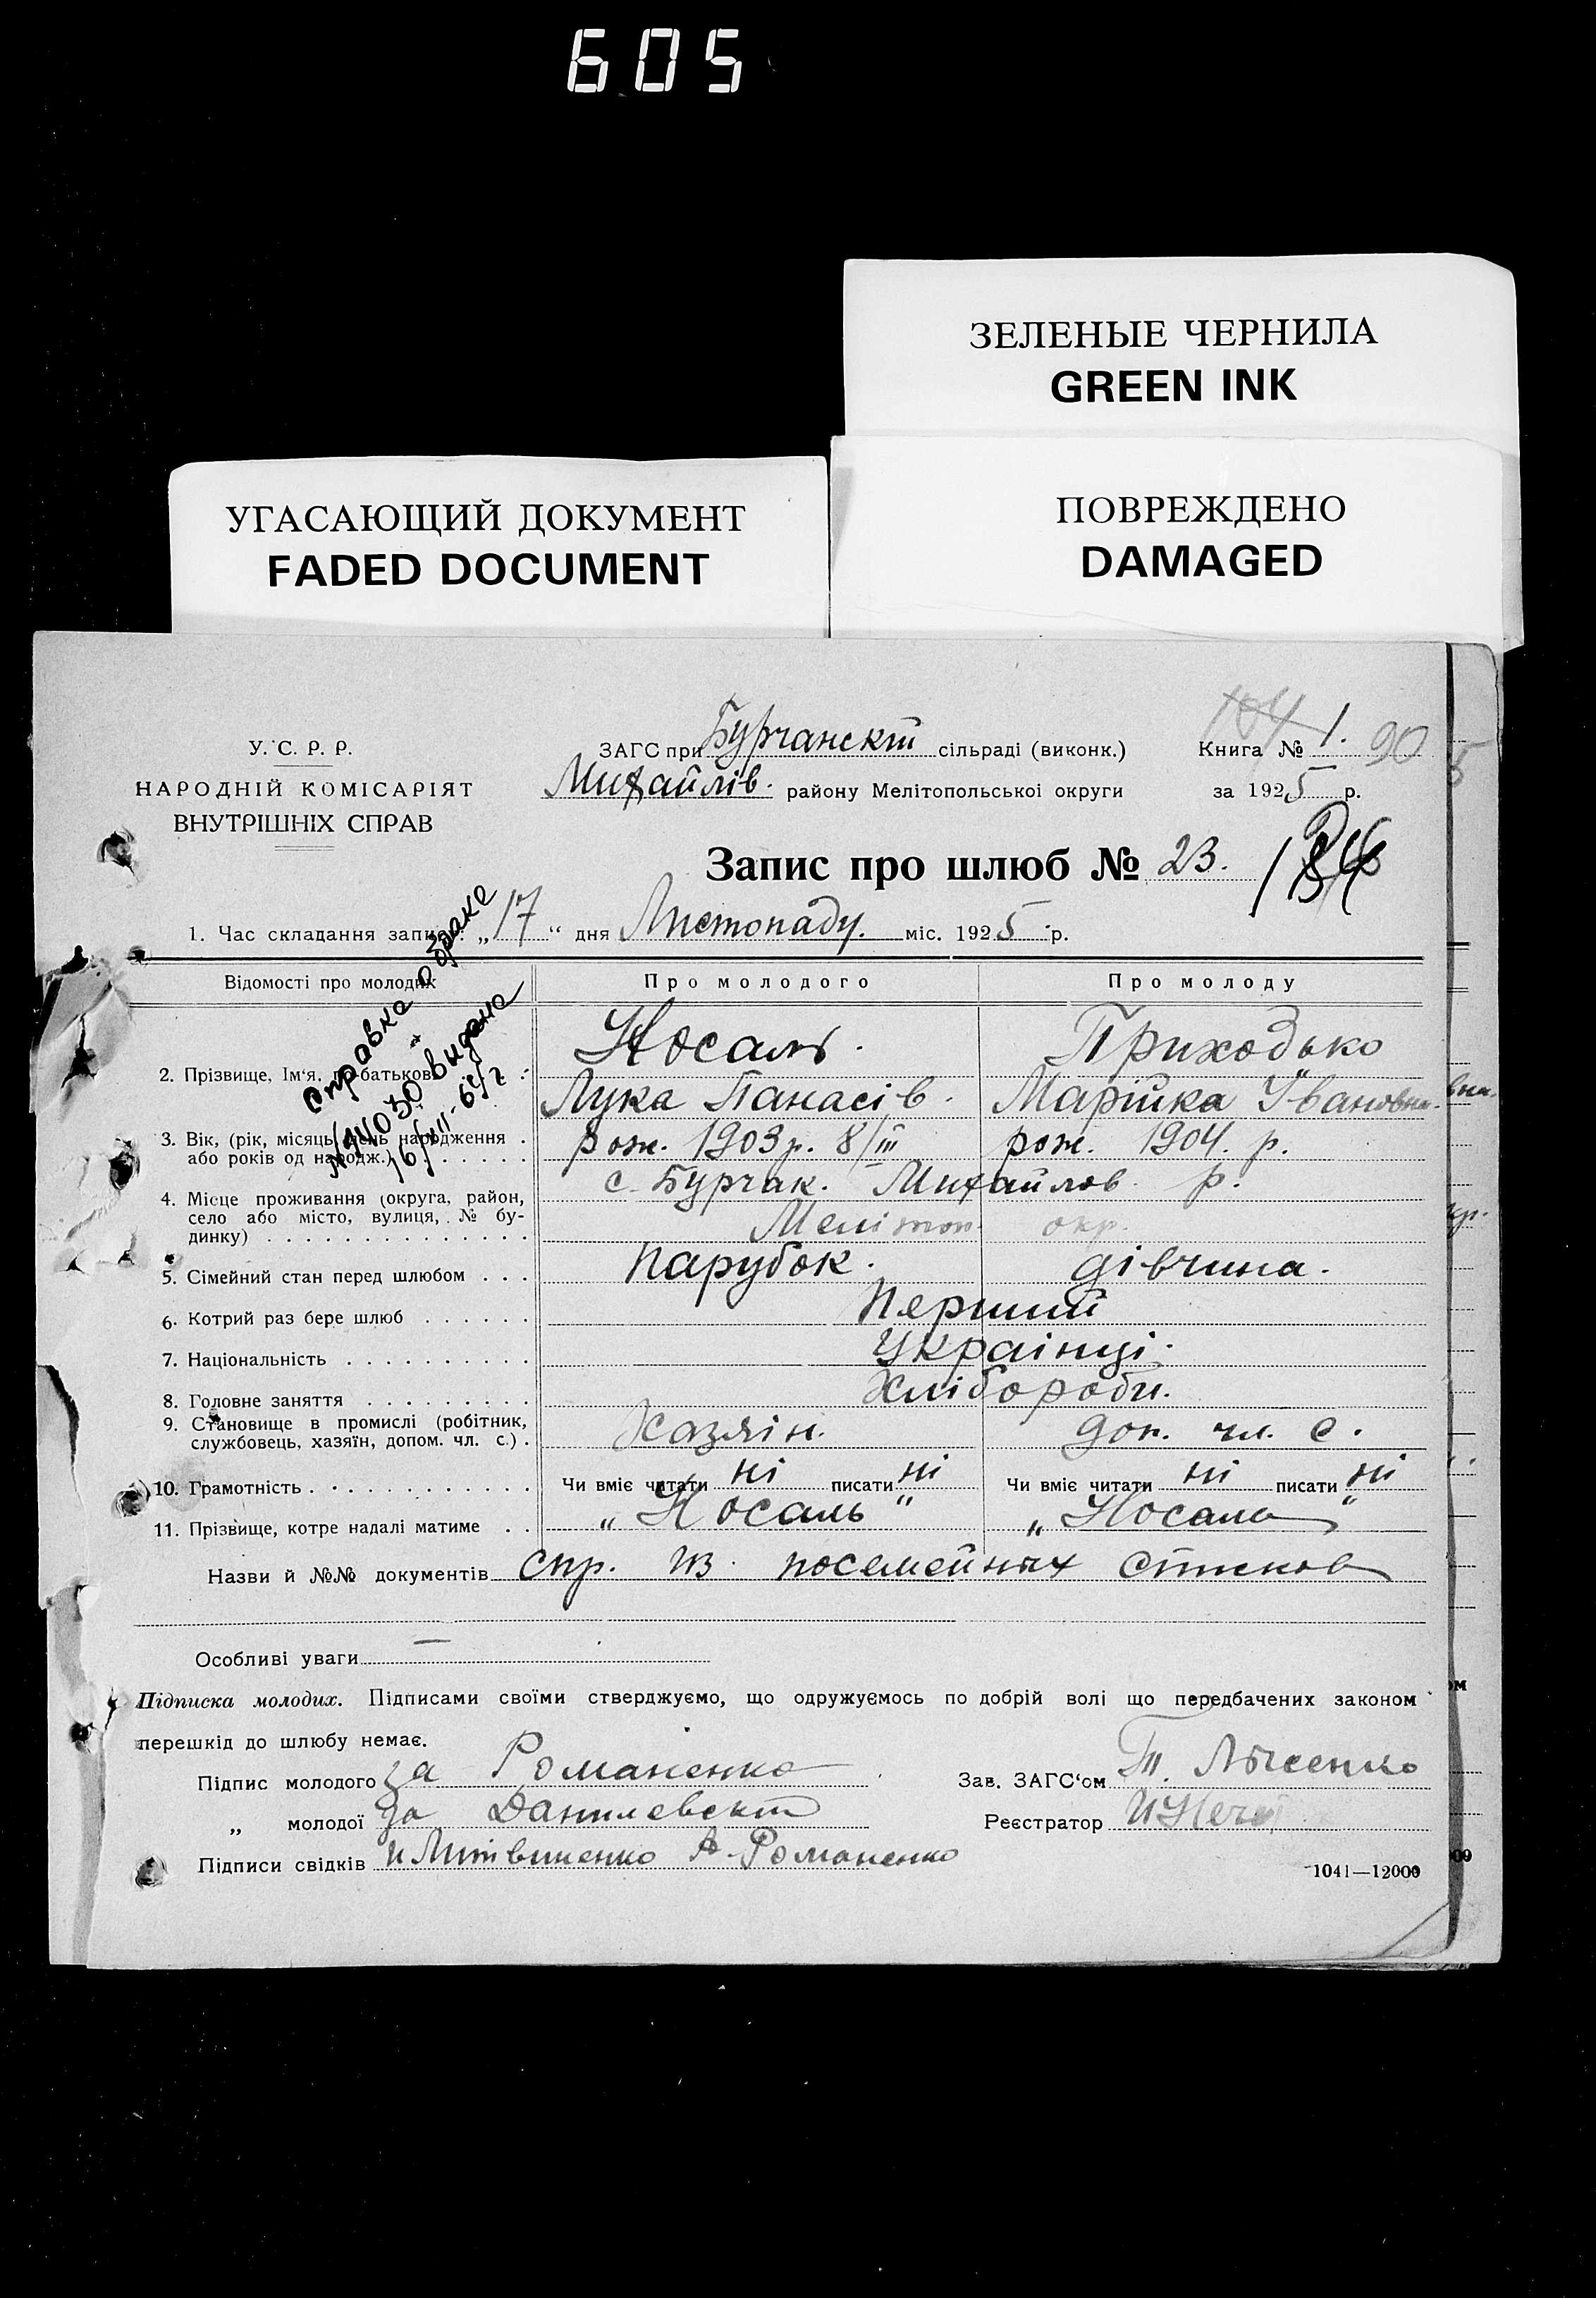 605
ЗЕЛЕНЫЕ ЧЕРНИЛА
GREEN INK
УГАСАЮЩИЙ ДОКУМЕНТ
FADED DOCUMENT
ПОВРЕЖДЕНО
DAMAGED
У. С. Р. Р.
НАРОДНІЙ КОМІСАРІЯТ
ВНУТРІШНІХ СПРАВ
ЗАГС при Бурчанскій сільраді (виконк.)
Михайлів. району Мелітопольської округи
Книга № 1. 90
за 1925 р.
Запис про шлюб № 23.
1. Час складання запису: „17“ дня Листопаду. міс. 1925 р.
Справка о браке
выдана
Відомості про молодих
Про молодого
Про молоду
2. Прізвище, Ім'я, по батькові
Носаль.
Лука Панасів.
Приходько
Марійка Івановна.
3. Вік, (рік, місяць, день народження .
або років од народж.) . . . . . .
рож. 1903 р. 8/III
рож. 1904. р.
4. Місце проживання (округа, район,
село або місто, вулиця, № бу-
динку) . . . . . . . . . . . . . .
с. Бурчак. Михайлов. р.
Меліт оп. окр.
5. Сімейний стан перед шлюбом . . .
парубок.
дівчина.
6. Котрий раз бере шлюб . . . . . .
перший
7. Національність . . . . . . . . . .
Українці.
8. Головне заняття . . . . . . . . .
Хлібороби.
9. Становище в промислі (робітник,
службовець, хазяїн, допом. чл. с.) .
Хазяін.
доп. чл. с.
10. Грамотність . . . . . . . . . . . .
Чи вміє читати ні писати ні
Чи вміє читати ні писати ні
11. Прізвище, котре надалі матиме . .
„Носаль“
„Носаль“
Назви й №№ документів спр. из посемейных списков
Особливі уваги —
Підписка молодих. Підписами своїми стверджуємо, що одружуємось по добрій волі що передбачених законом
перешкід до шлюбу немає.
Підпис молодого за Романенко
„ молодої за Данилевскій
Підписи свідків И Литвиненко А. Романенко
Зав. ЗАГС'ом Т. Лысенко
Реєстратор
1041—12000